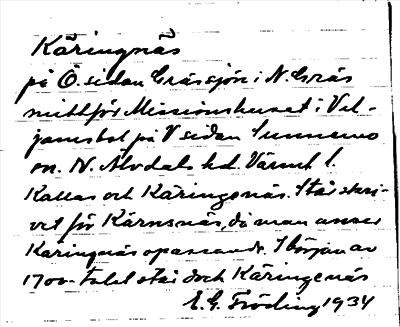 Käringnäs
på Ö. sidan Grässjön i N. Gräs
mittför Missionshuset i Vil-
jamsbol på V sidan Sunnemo
sn. N. Älvdals hd. Värml. l.
Kallas och Käringenäs. Står skri-
vet för Kärnsnäs, då man anser
Käringnäs opassande. I början av
1700-talet står dock Käringenäs
E. G. Fröding 1934